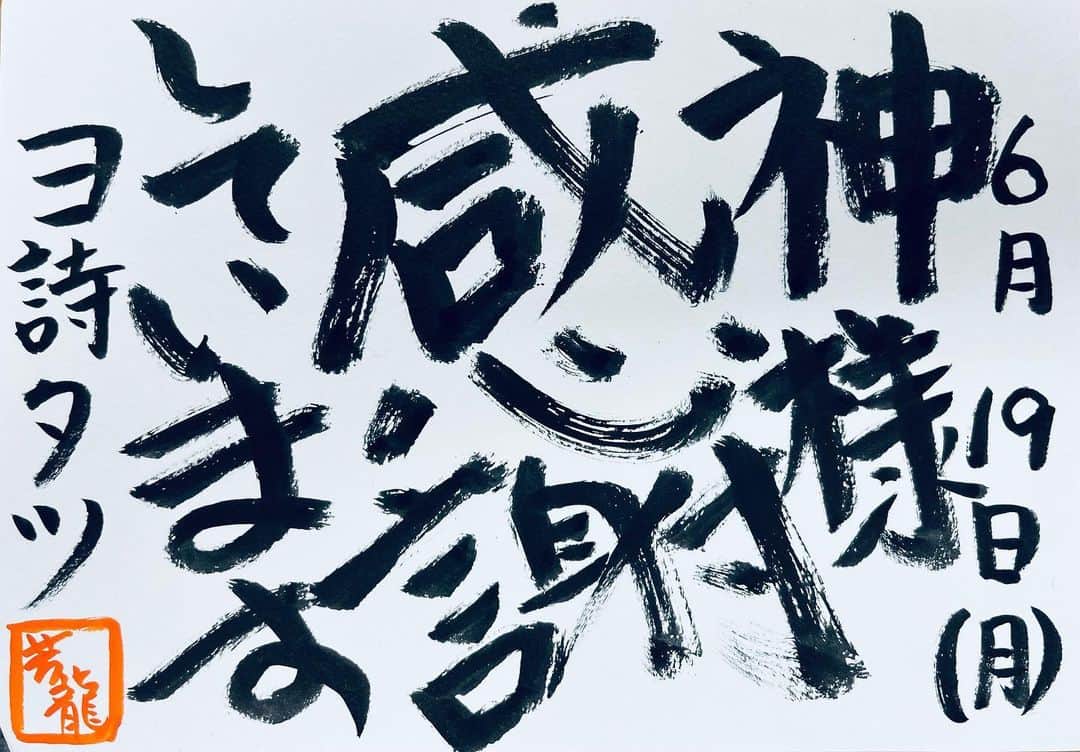 6月19日(月)
神様
感謝
しています
ヨ詩タツ
龍